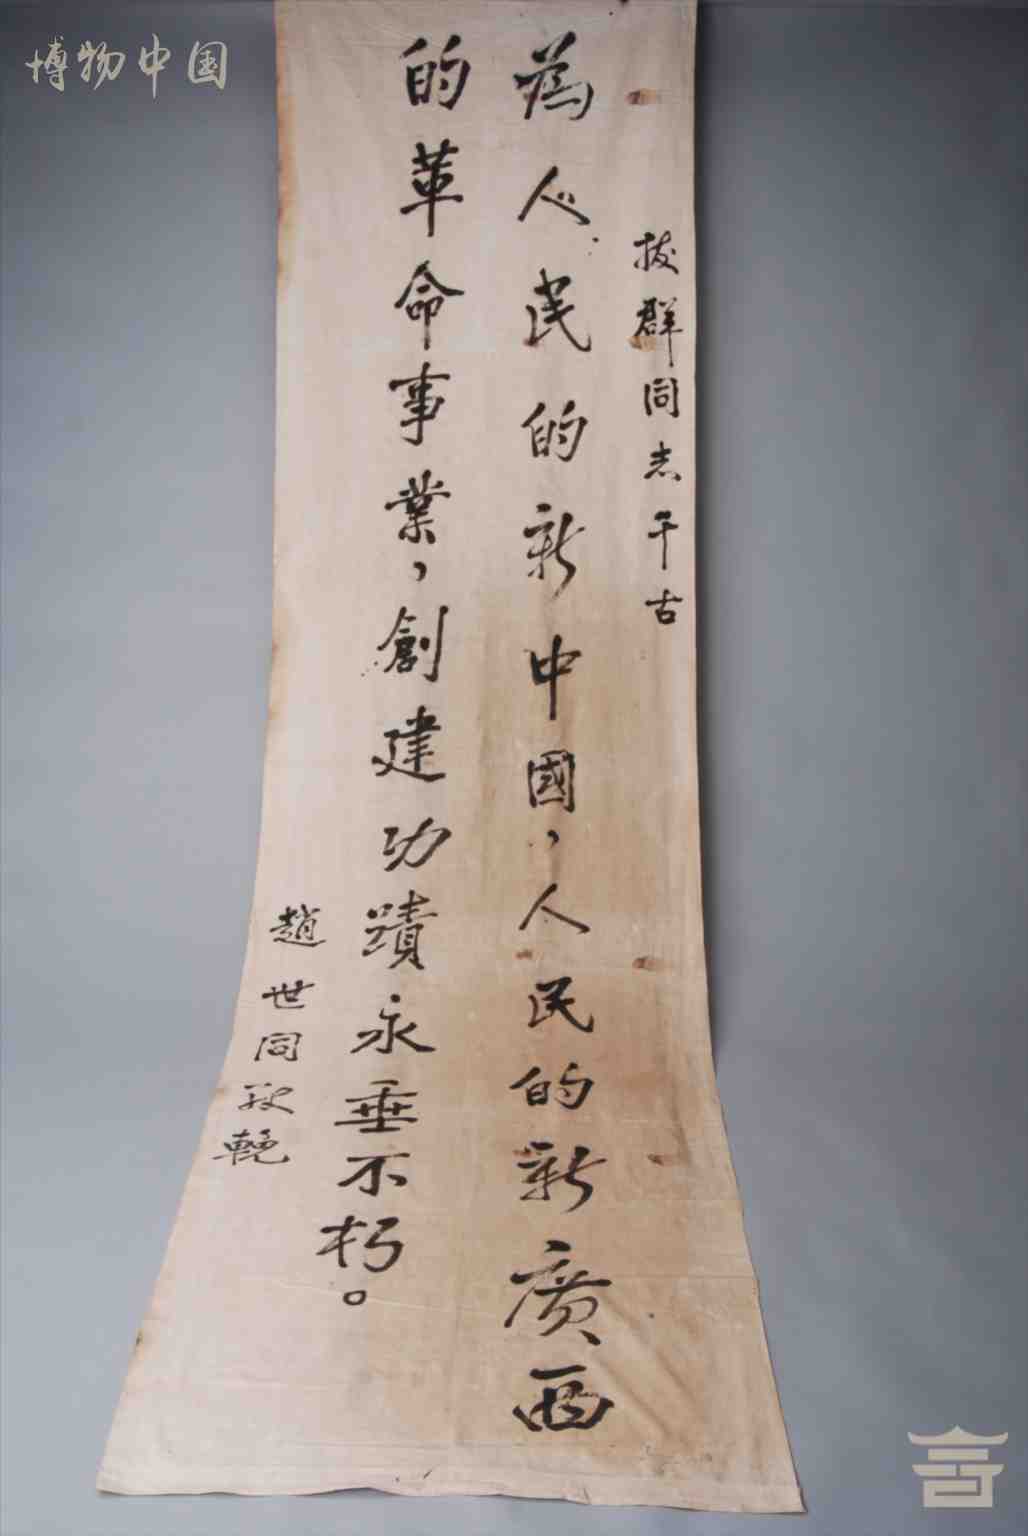 博物中国
拔群同志千古
為人民的新中國，人民的新廣西
的革命事業，創建功蹟永垂不朽。
趙世同敬輓